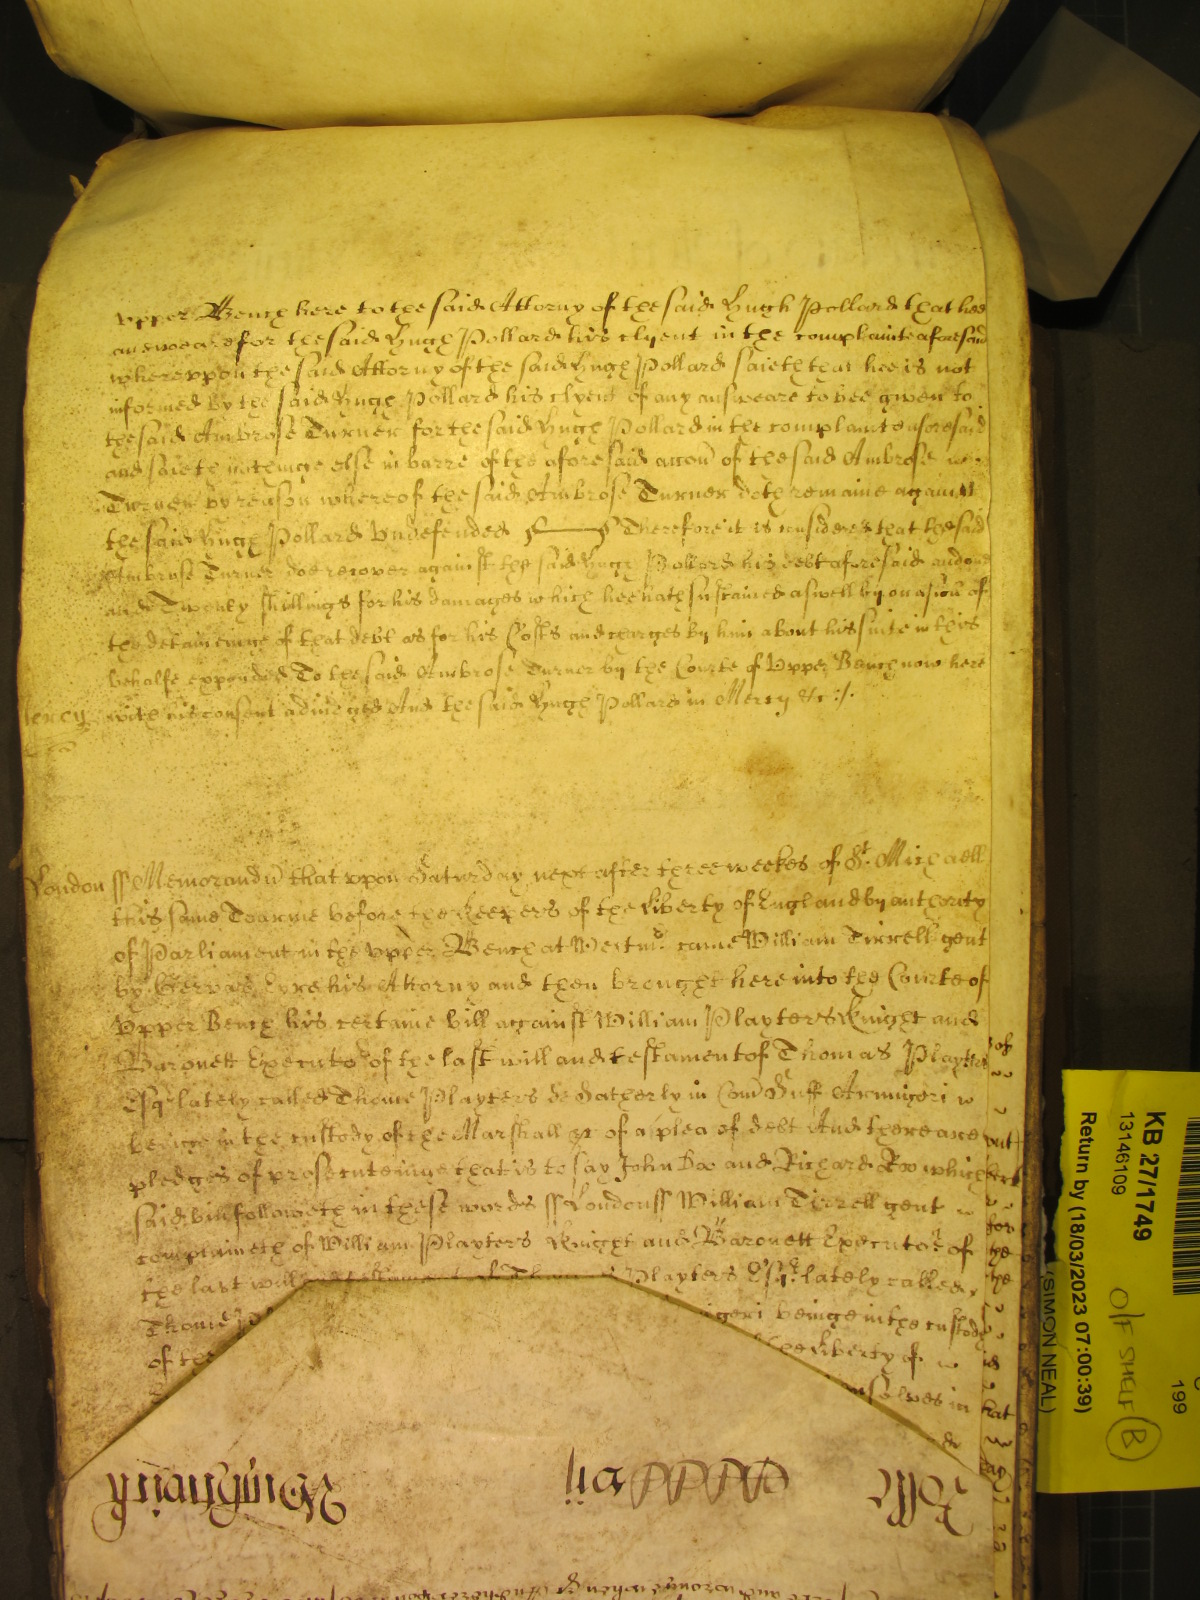 upper Bench here to the said Attorny of the said Hugh Pollard that hee
answeare for the said Hugh Pollard his clyent in the complainte aforesaid
whereuppon the said Attorny of the said Hugh Pollard saieth that hee is not
informed by the said Hugh Pollard his clyent of any answeare to bee given to
the said Ambrose Turner for the said Hugh Pollard in the complaint aforesaid
and saieth nothinge else in barre of the aforesaid accon of the said Ambrose
Turner by reason whereof the said Ambrose Turner doth remaine against
the said Hugh Pollard undefended Therefore it is considered that the said
Ambrose Turner doe recover against the said Hugh Pollard his debt aforesaid and
and Twenty shillings for his damages which hee hath sustained aswell by occasion of
the deteineinge of that debt as for his Costs and charges by him about his suite in this
behalfe expended To the said Ambrose Turner by the Courte of Upper Bench now here
mercy with his consent adiudged And the said Hugh Pollard in Mercy &c
London ss Memorandu that upon Saturday next after three weekes of St Michaell
this same Tearme before the keepers of the liberty of England by authority
of Parliament in the upper Bench at Westmr came William Tirrell gent
by Gervas Eyre his Attorny and then brought here into the Courte of
Upper Bench his certaine bill against William Playters Knight and
Baronett Executor of the last will and testament of Thomas Playters
Esqr lately called Thome Playters de Satherly in Com Suff Armigeri
beinge in the custody of the Marshall &c of a plea of debt And there are
pledges of prosecuteinge that is to say John Doo and Richard Roo which
said bill followeth in these words ss London ss William Tirrell gent
complaineth of William Playters Knight and Baronett Executor of
the last will Playters Esqr lately called
Thome igeri beinge in the custody
of the the liberty of
mselves in
Rolle
Wingfeild
KB 27/1749
13146109
Return by (18/03/2023 07:00:39)
(SIMON NEAL)
O/F SHELF B
199